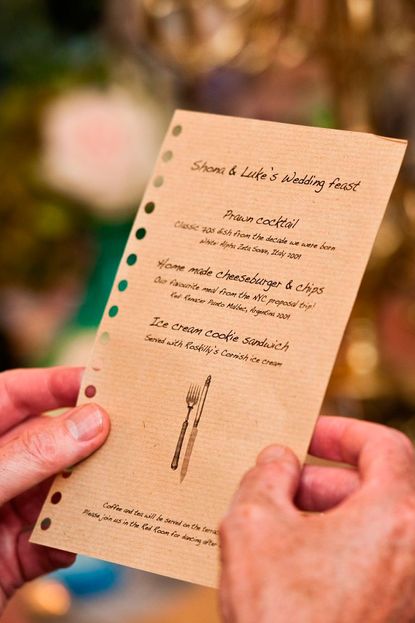 Shona & Luke's Wedding feast
Prawn cocktail
Classic 70s dish from the decade we were born
White: Alpha Zeta Soave, Italy 2009
Home made cheeseburger & chips
Our favourite meal from the NYC proposal trip!
Red: Renacer Punto Malbec, Argentina 2009
Ice cream cookie sandwich
Served with Roskilly's Cornish ice cream
Coffee and tea will be served on the terrace
Please join us in the Red Room for dancing after